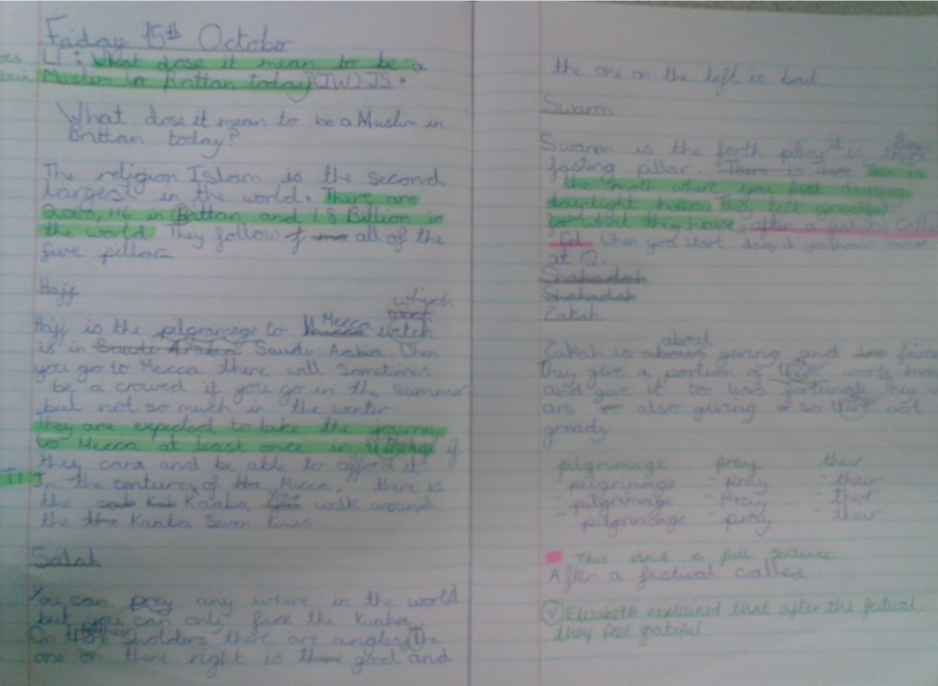 Friday 15th October
LI: What dose it mean to be a
Muslim in Brittan today? (IW) JS.
What dose it mean to be a Muslim in
Brittan today?
The religion Islam is the second
largest in the world. There are
in Brittan and 1.8 Billion in
the world. They follow all of the
five pillar
Hajj
which
Hajj is the pilgramege to Mecca witch
is in Saudi Arabia Saudi Arabia. When
you go to Mecca there will sometimes
be a crowed if you go in the summer
but not so much in the winter
They are expected to take the journey
to Mecca at least once in if
they can and be able to afford it
In the centure of the Mecca there is
the Kaaba walk around
the Kaaba Seven times
Salah
You can pray any where in the world
but you can only face the Kaaba.
On sholders there are angles The
one on there right is good and
the one on the left is bad
Swarm
Swarm is the forth pillar it is
fasting pillar. There is
the month where you fast during
daylight hours They felt grateful
for what they have, after a festival called
Eid. When you start doing it you should
at 12.
Shahadah
Shahadah
Zakah
about
Zakah is giving and
They give a portion of
and give it to fortunate They
are also giving so not
greedy
pilgrimage pray their
- pilgrimage - pray - their
- pilgrimage - pray - their
- pilgrimage - pray - their
This isn't a full sentence
After a festival called
Y Elizabeth explained that after the festival
they feel grateful.